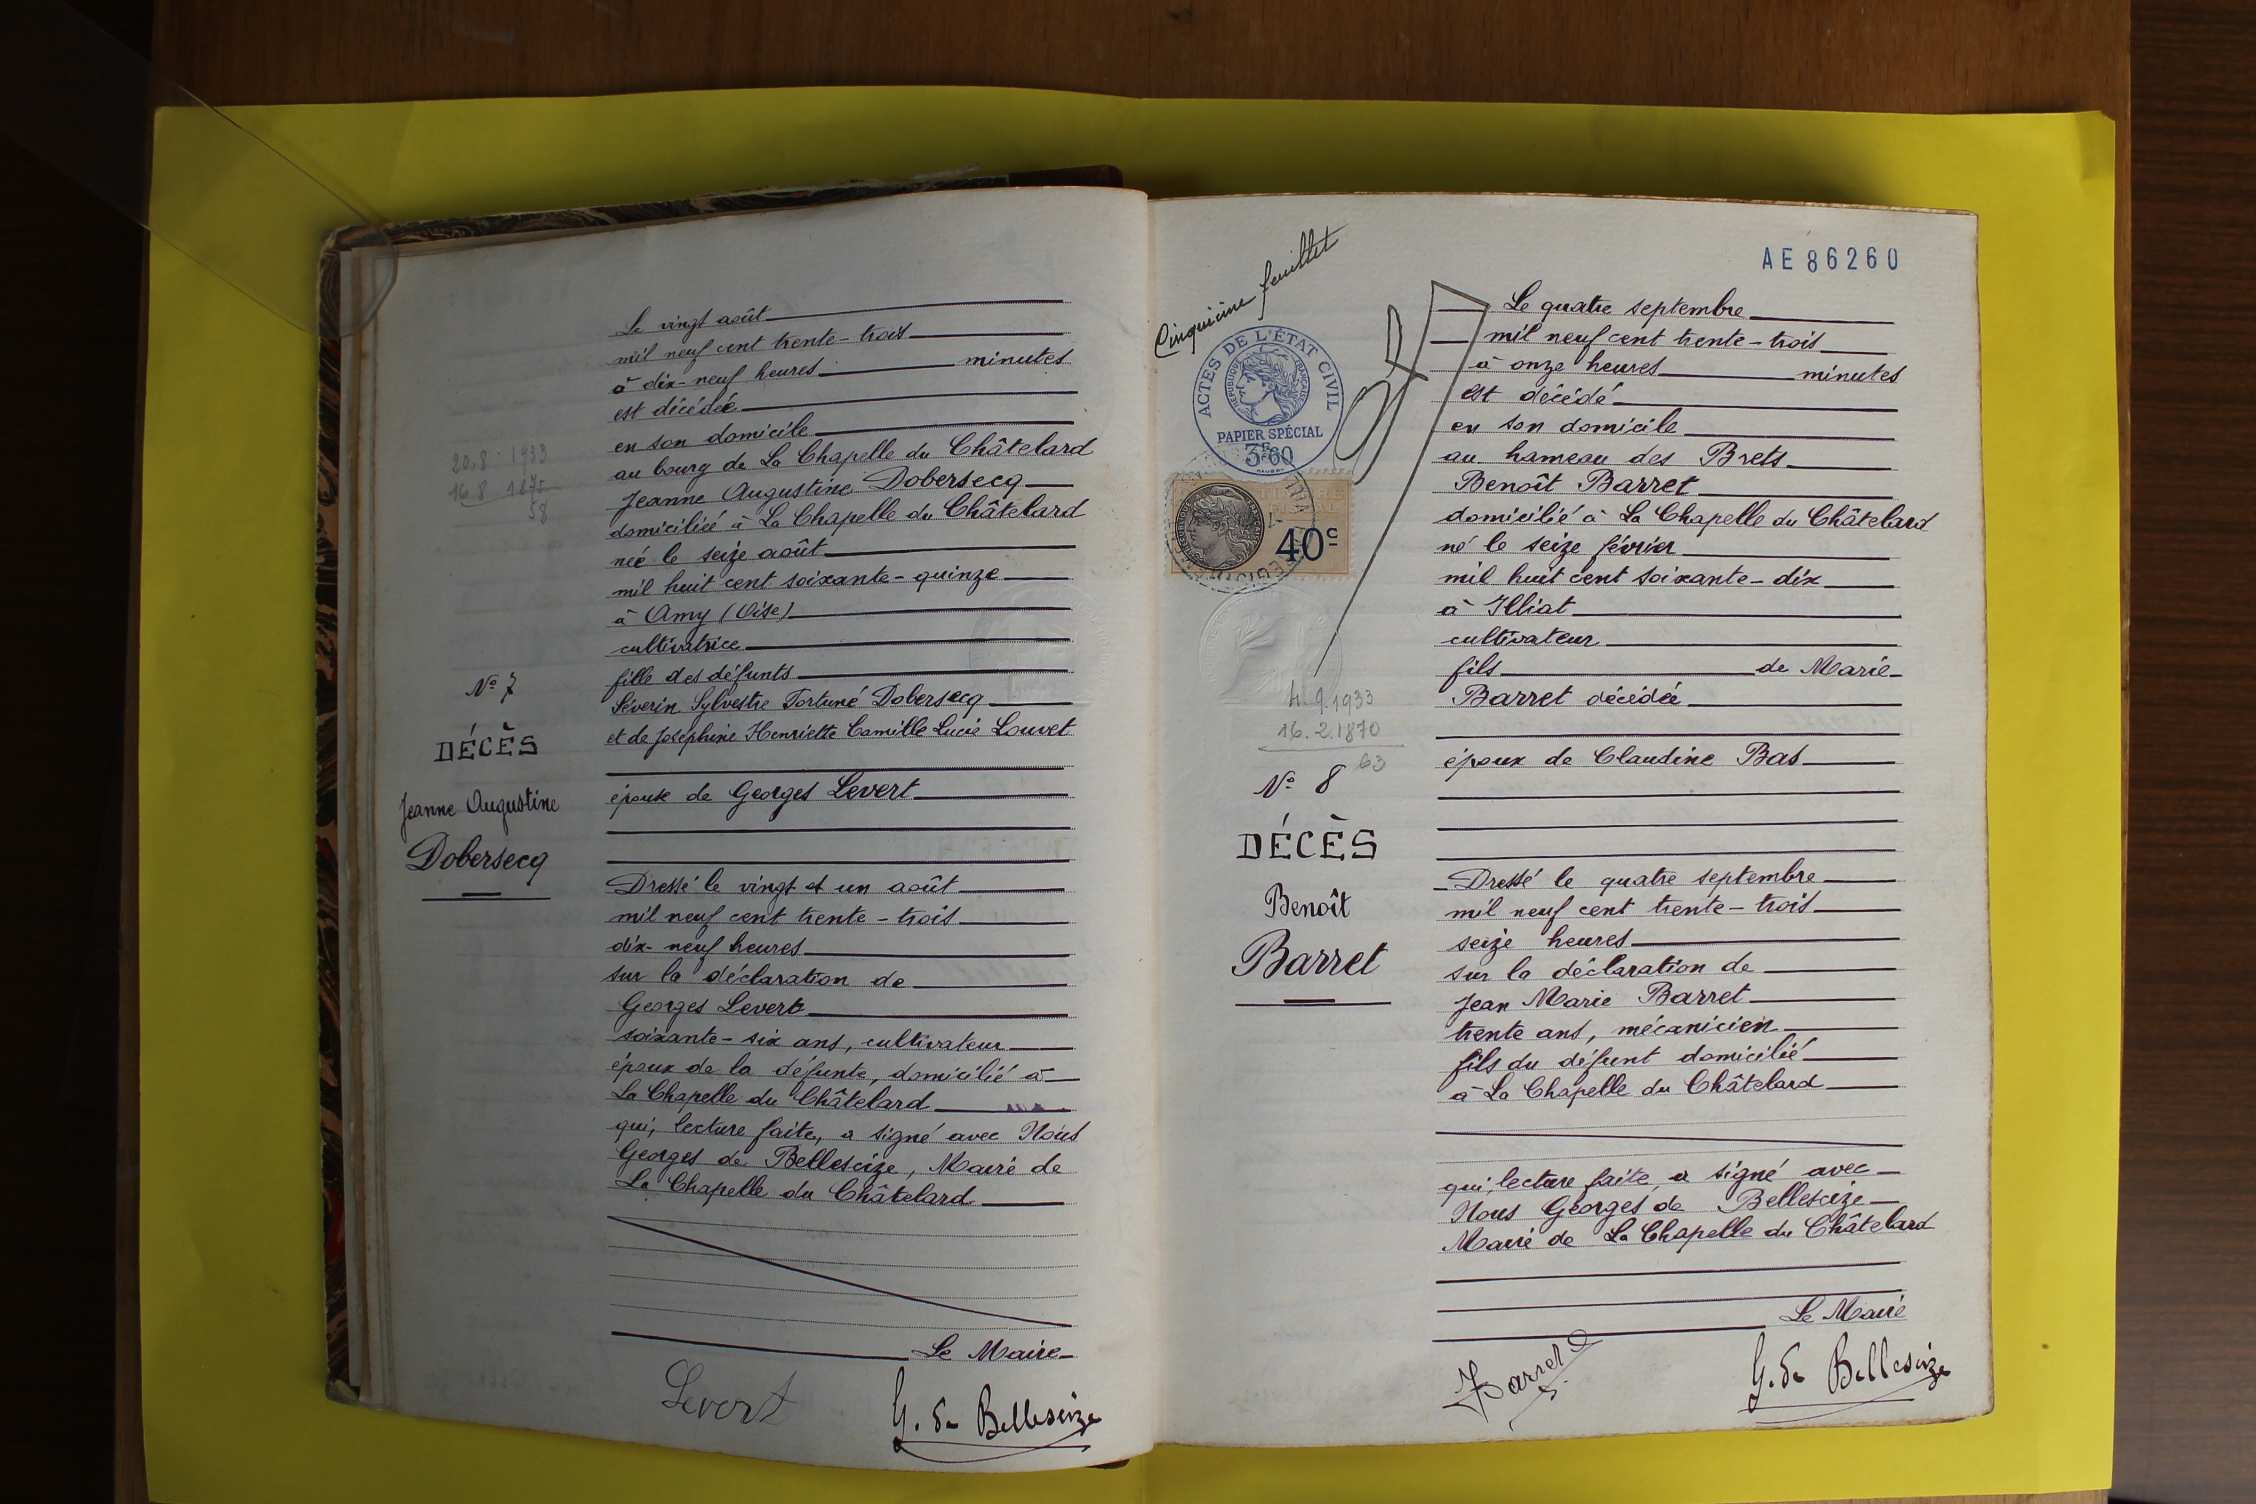 20.8.1933
16.8.1875
58
N° 7
DÉCÈS
Jeanne Augustine
Dobersecq
Le vingt août
mil neuf cent trente-trois
à dix-neuf heures minutes
est décédée
en son domicile
au bourg de La Chapelle du Châtelard
Jeanne Augustine Dobersecq
domiciliée à La Chapelle du Châtelard
née le seize août
mil huit cent soixante-quinze
à Amy (Oise)
cultivatrice
fille des défunts
Séverin Sylvestre Fortuné Dobersecq
et de Joséphine Henriette Camille Lucie Louvet
épouse de Georges Levert
Dressé le vingt et un août
mil neuf cent trente-trois
dix-neuf heures
sur la déclaration de
Georges Levert
soixante-six ans, cultivateur
époux de la défunte, domicilié à
La Chapelle du Châtelard
qui, lecture faite, a signé avec Nous
Georges de Bellescize, Maire de
La Chapelle du Châtelard
Le Maire
Levert
G. de Bellescize
AE 86260
Cinquième feuillet
ACTES DE L'ÉTAT CIVIL
RÉPUBLIQUE FRANÇAISE
PAPIER SPÉCIAL
3F60
40c
4.9.1933
16.2.1870
63
N° 8
DÉCÈS
Benoît
Barret
Le quatre septembre
mil neuf cent trente-trois
à onze heures minutes
est décédé
en son domicile
au hameau des Brets
Benoît Barret
domicilié à La Chapelle du Châtelard
né le seize février
mil huit cent soixante-dix
à Illiat
cultivateur
fils de Marie
Barret décédée
époux de Claudine Bas
Dressé le quatre septembre
mil neuf cent trente-trois
seize heures
sur la déclaration de
Jean Marie Barret
trente ans, mécanicien
fils du défunt domicilié
à La Chapelle du Châtelard
qui, lecture faite, a signé avec
Nous Georges de Bellescize
Maire de La Chapelle du Châtelard
Le Maire
Barret
G. de Bellescize